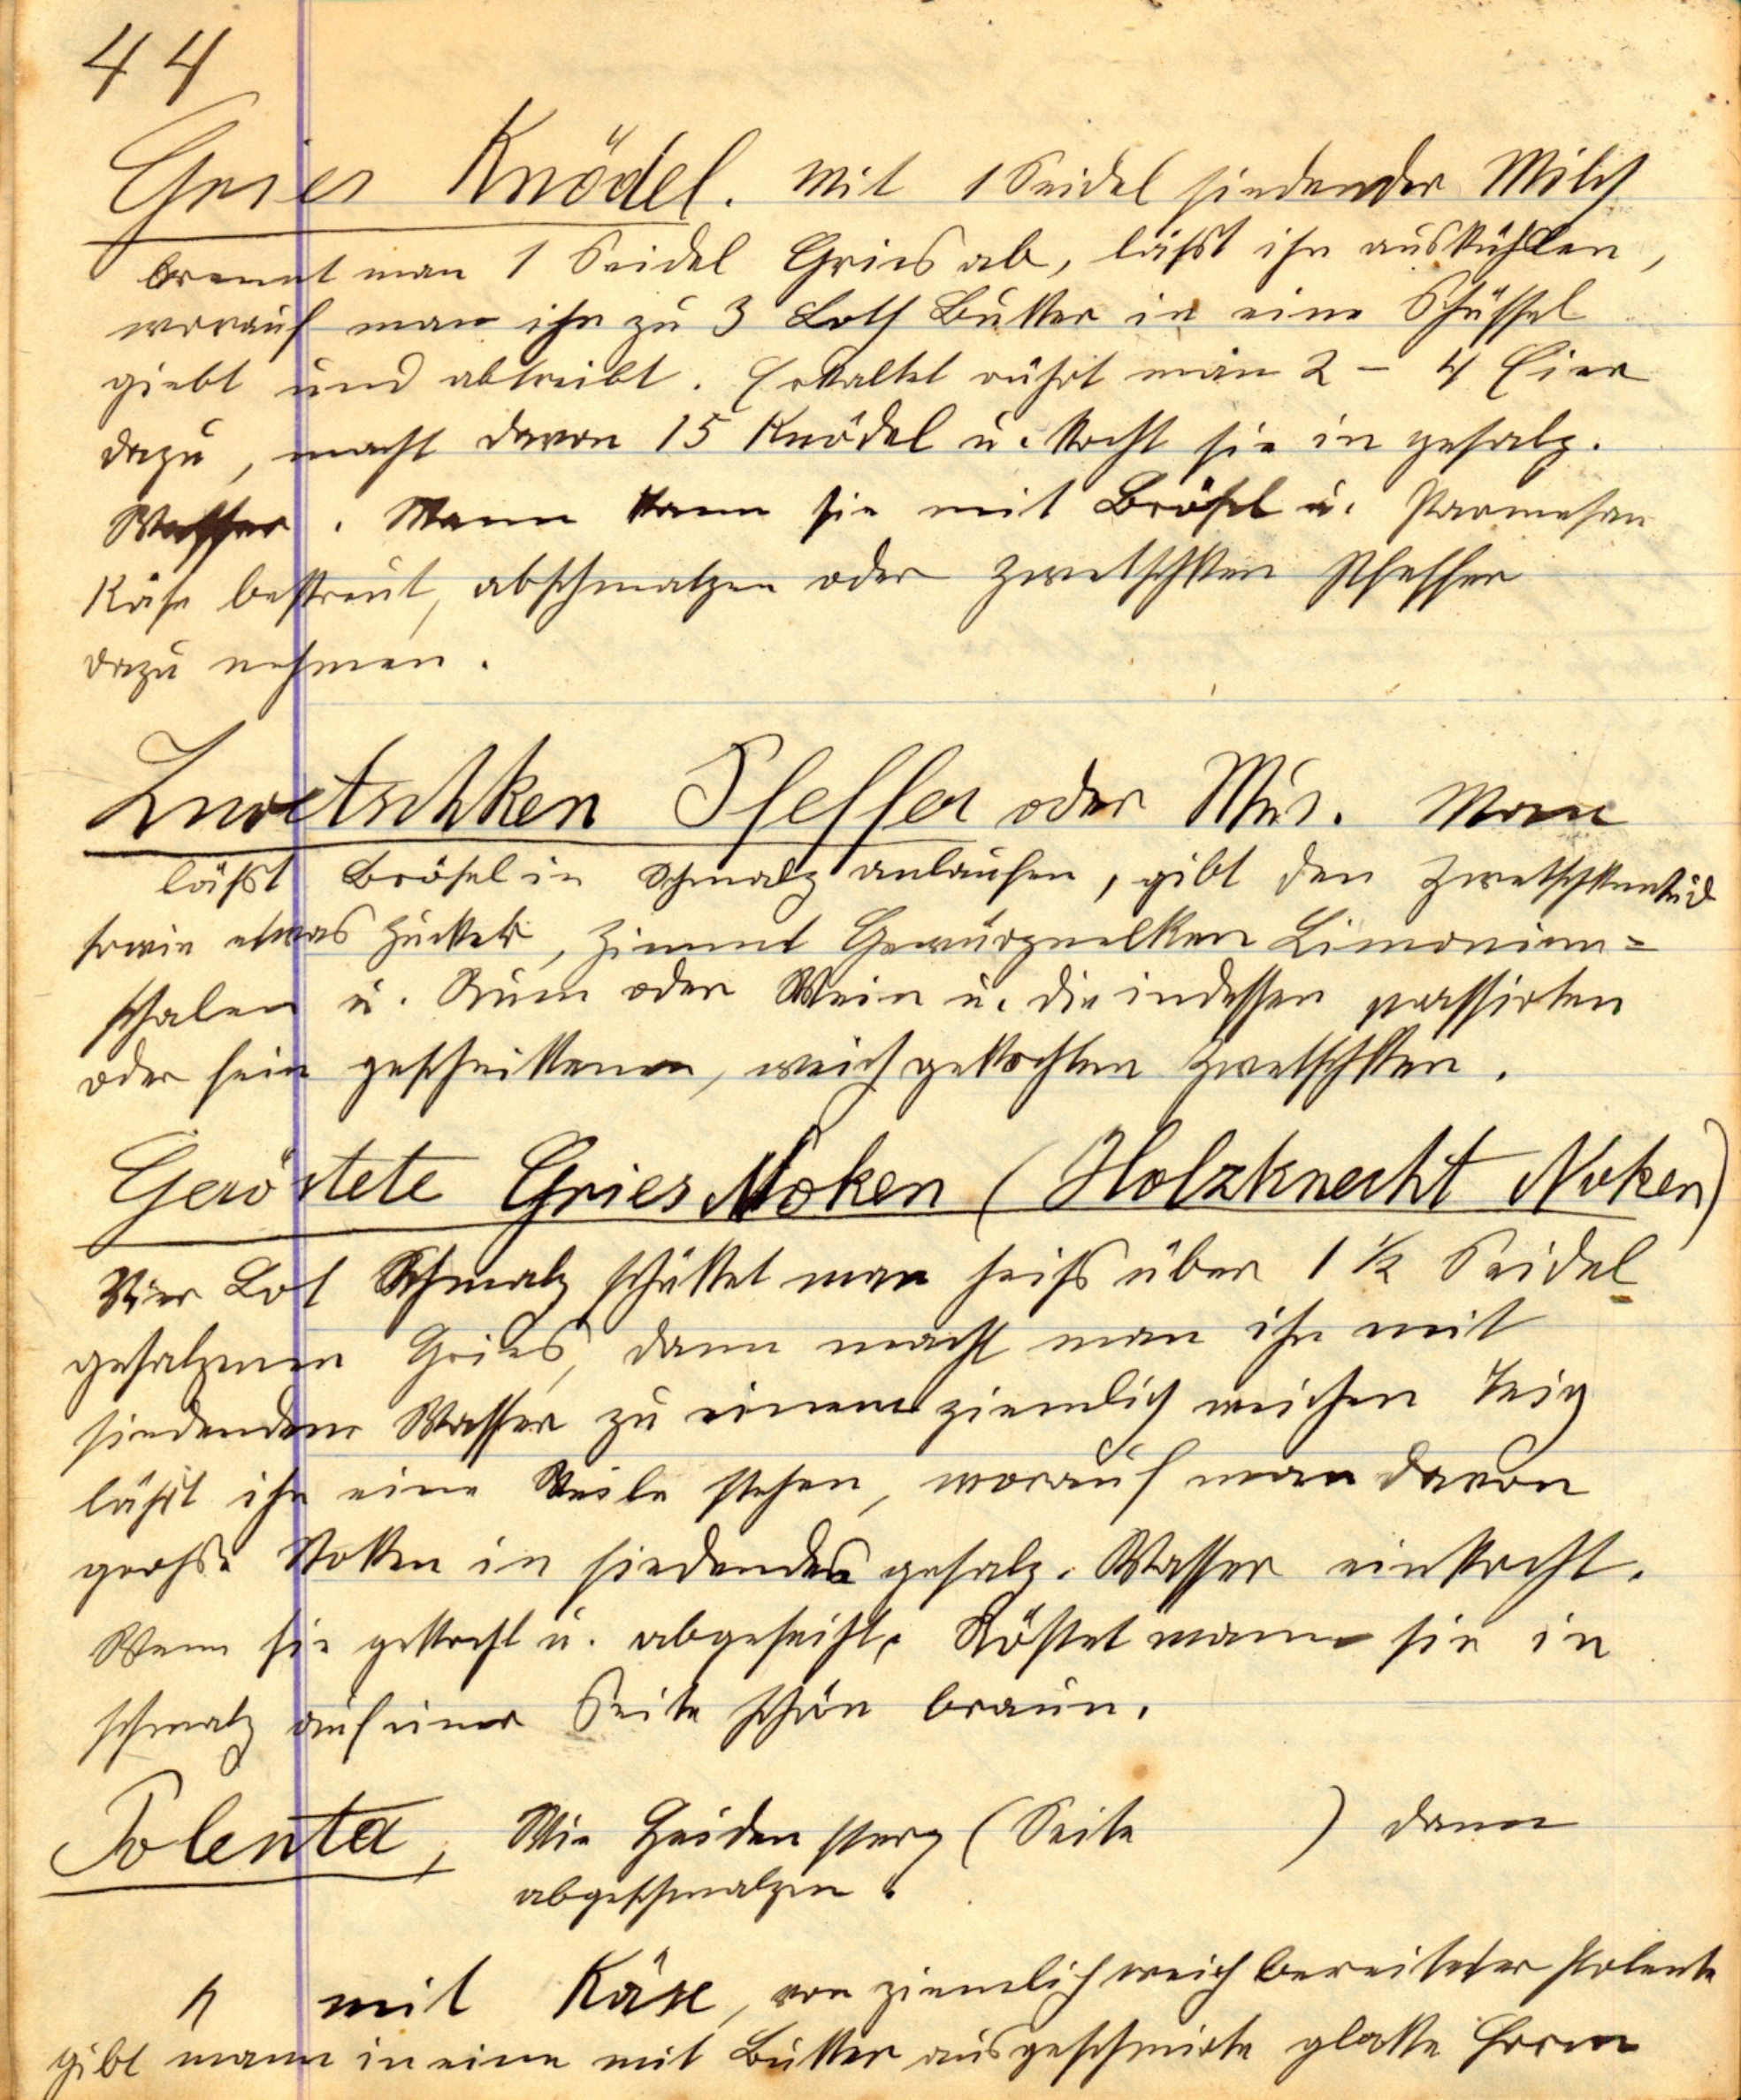 44
Gries Knödel. Mit 1 Seidel siedender Milch
brennt man 1 Seidel Gries ab, läßt ihn auskühlen,
worauf man ihn zu 3 Loth Butter in eine Schüssel
giebt und abtreibt. Erkaltet rührt man 2 - 4 Eier
dazu, macht davon 15 Knödel u. kocht sie in gesalz.
Wasser. Mann kann sie mit Brösel u. Parmesan
Käse bestreut, abschmalzen oder Zwetschken Pfeffer
dazu nehmen.
Zwetschken Pfeffer oder Mus. Man
läßt Brösel in Schmalz anlaufen, gibt den Zwetschkensud
sowie etwas Zucker, Zimmt Gewürznelken Limonien=
schalen u. Rum oder Wein u. die indessen passirten
oder fein geschnittenen, weichgekochten Zwetschken.
Geröstete Gries Noken (Holzknecht Noken)
Vier Lot Schmalz schüttet man heiß über 1 ½ Seidel
gesalzenen Gries, dann macht man ihn mit
siedendem Wasser zu einem ziemlich weichen Teig
läßt ihn eine Weile stehen, worauf man davon
große Nokken in siedendes gesalz. Wasser einkocht.
Wenn sie gekocht u. abgeseiht, Röstet mann sie in
schmalz auf einer Seite schön braun.
Polenta, Wie Heiden sterz (Seite ) dann
abgeschmalzen.
" mit Käse, von ziemlich weich bereiteter Polenta
gibt mann in eine mit Butter ausgeschmirte glatte Form